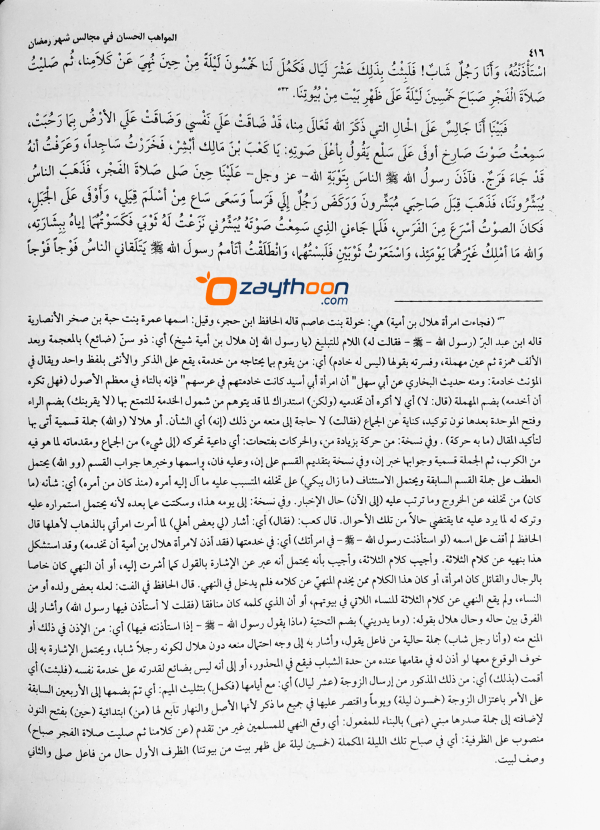 المواهب الحسان في مجالس شهر رمضان
٤١٦
اسْتَأْذَنْتُهُ، وَأَنَا رَجُلٌ شَابٌّ! فَلَبِثْتُ بِذَلِكَ عَشْرَ لَيَالٍ فَكَمُلَ لَنَا خَمْسُونَ لَيْلَةً مِنْ حِينَ نُهِيَ عَنْ كَلَامِنَا، ثُم صَلَيْتُ
صَلاَةَ الْفَجْرِ صَبَاحَ خَمْسِينَ لَيْلَةً عَلَى ظَهْرِ بَيْتٍ مِنْ بُيُوتِنَا.
فَبَيْنَا أَنَا جَالِسٌ عَلَى الحَالِ التي ذكَرَ الله تَعَالَى مِنا، قَدْ ضَاقَتْ عَلَي نَفْسِي وَضَاقَتْ عَلَي الأَرْضُ بِمَا رَحُبَتْ،
سَمِعْتُ صَوْتَ صَارِخٍ أوفَى عَلَى سَلْعٍ يَقُولُ بِأَعْلَى صَوتِهِ: يَا كَعْبَ بْنَ مَالِكٍ أَبْشِرْ، فَخَرَرْتُ سَاجِداً، وَعَرَفْتُ أنهُ
قَدْ جَاءَ فَرَجٌ. فآذَنَ رسولُ الله ﷺ الناسَ بِتَوْبَةِ الله- عز وجل- عَلَيْنَا حِينَ صَلى صَلاَةَ الفَجْرِ، فَذَهَبَ الناسُ
يُبَشِّرُونَنَا، فَذَهَبَ قِبَلَ صَاحِبَي مُبَشِّرُونَ وَرَكَضَ رَجُلٌ إِلَي فَرَساً وَسَعَى سَاعٍ مِنْ أَسْلَمَ قِبَلِي، وَأَوْفَى عَلَى الْجَبَلِ،
فَكانَ الصوْتُ أَسْرَعَ مِنَ الفَرَسِ، فَلَما جَاءني الذي سَمِعْتُ صَوْتَهُ يُبَشِّرُني نَزَعْتُ لَهُ ثَوْبَي فَكَسَوْتُهُمَا إياهُ بِبِشَارَتِهِ،
والله مَا أمْلِكُ غَيْرَهُمَا يَوْمَئِذٍ، وَاسْتَعَرْتُ ثَوْبَيْنِ فَلَبِسْتُهُما، وَانْطَلَقْتُ أتَأممُ رسولَ الله ﷺ يَتَلَقاني الناسُ فَوْجاً فَوْجاً
zaythoon
.com
(فجاءت امرأة هلال بن أمية) هي: خولة بنت عاصم قاله الحافظ ابن حجر، وقيل: اسمها عمرة بنت حبة بن صخر الأنصارية
قاله ابن عبد البرّ (رسول الله - ﷺ - فقالت له) اللام للتبليغ (يا رسول الله إن هلال بن أمية شيخ) أي: ذو سنّ (ضائع) بالمعجمة وبعد
الألف همزة ثم عين مهملة، وفسرته بقولها (ليس له خادم) أي: من يقوم بما يحتاجه من خدمة، يقع على الذكر والأنثى بلفظ واحد ويقال في
المؤنث خادمة: ومنه حديث البخاري عن أبي سهل" أن امرأة أبي أسيد كانت خادمتهم في عرسهم" فإنه بالتاء في معظم الأصول (فهل تكره
أن أخدمه) بضم المهملة (قال: لا) أي لا أكره أن تخدميه (ولكن) استدراك لما قد يتوهم من شمول الخدمة للتمتع بها (لا يقربنك) بضم الراء
وفتح الموحدة بعدها نون توكيد، كناية عن الجماع (فقالت) لا حاجة إلى منعه من ذلك (إنه) أي الشأن. أو هلالا (والله) جملة قسمية أتى بها
لتأكيد المقال (ما به حركة) . وفي نسخة: من حركة بزيادة من، والحركات بفتحات: أي داعية تحركه (إلى شيء) من الجماع ومقدماته لما هو فيه
من الكرب، ثم الجملة قسمية وجوابها خبر إن، وفي نسخة بتقديم القسم على إن، وعليه فان، واسمها وخبرها جواب القسم (وو الله) يحتمل
العطف على جملة القسم السابقة ويحتمل الاستئناف (ما زال يبكي) على تخلفه المتسبب عليه ما آل إليه أمره (منذ كان من أمره) أي: شأنه (ما
كان) من تخلفه عن الخروج وما ترتب عليه (إلى الآن) حال الإخبار. وفي نسخة: إلى يومه هذا، وسكتت عما بعده لأنه يحتمل استمراره عليه
وتركه له لما يرد عليه مما يقتضي حالاً من تلك الأحوال. قال كعب: (فقال) أي: أشار (لي بعض أهلي) لما أمرت امرأتي بالذهاب لأهلها قال
الحافظ لم أقف على اسمه (لو استأذنت رسول الله - ﷺ - في امرأتك) أي: في خدمتها (فقد أذن لامرأة هلال بن أمية أن تخدمه) وقد استشكل
هذا بنهيه عن كلام الثلاثة. وأجيب كلام الثلاثة، وأجيب بأنه يحتمل أنه عبر عن الإشارة بالقول كما أشرت إليه، أو أن النهي كان خاصا
بالرجال والقائل كان امرأة، أو كان هذا الكلام ممن يخدم المنهيّ عن كلامه فلم يدخل في النهي. قال الحافظ في الفت: لعله بعض ولده أو من
النساء، ولم يقع النهي عن كلام الثلاثة للنساء اللاتي في بيوتهم، أو أن الذي كلمه كان منافقا (فقلت لا أستأذن فيها رسول الله) وأشار إلى
الفرق بين حاله وحال هلال بقوله: (وما يدريني) بضم التحتية (ماذا يقول رسول الله - ﷺ - إذا استأذنته فيها) أي: من الإذن في ذلك أو
المنع منه (وأنا رجل شاب) جملة حالية من فاعل يقول، وأشار به إلى وجه احتمال منعه دون هلال لكونه رجلاً شابا، ويحتمل الإشارة به إلى
خوف الوقوع معها لو أذن له في مقامها عنده من حدة الشباب فيقع في المحذور، أو إلى أنه ليس بضائع لقدرته على خدمة نفسه (فلبثت) أي
أقمت (بذلك) أي: من ذلك المذكور من إرسال الزوجة (عشر ليال) أي: مع أيامها (فكمل) بتثليث الميم: أي تمّ بضمها إلى الأربعين السابقة
على الأمر باعتزال الزوجة (خمسون ليلة) ويوماً واقتصر عليها في جميع ما ذكر لأنها الأصل والنهار تابع لها (من) ابتدائية (حين) بفتح النون
لإضافته إلى جملة صدرها مبني (نهى) بالبناء للمفعول: أي وقع النهي للمسلمين غير من تقدم (عن كلامنا ثم صليت صلاة الفجر صباح)
منصوب على الظرفية: أي في صباح تلك الليلة المكملة (خمسين ليلة على ظهر بيت من بيوتنا) الظرف الأول حال من فاعل صلى والثاني
وصف لبيت.